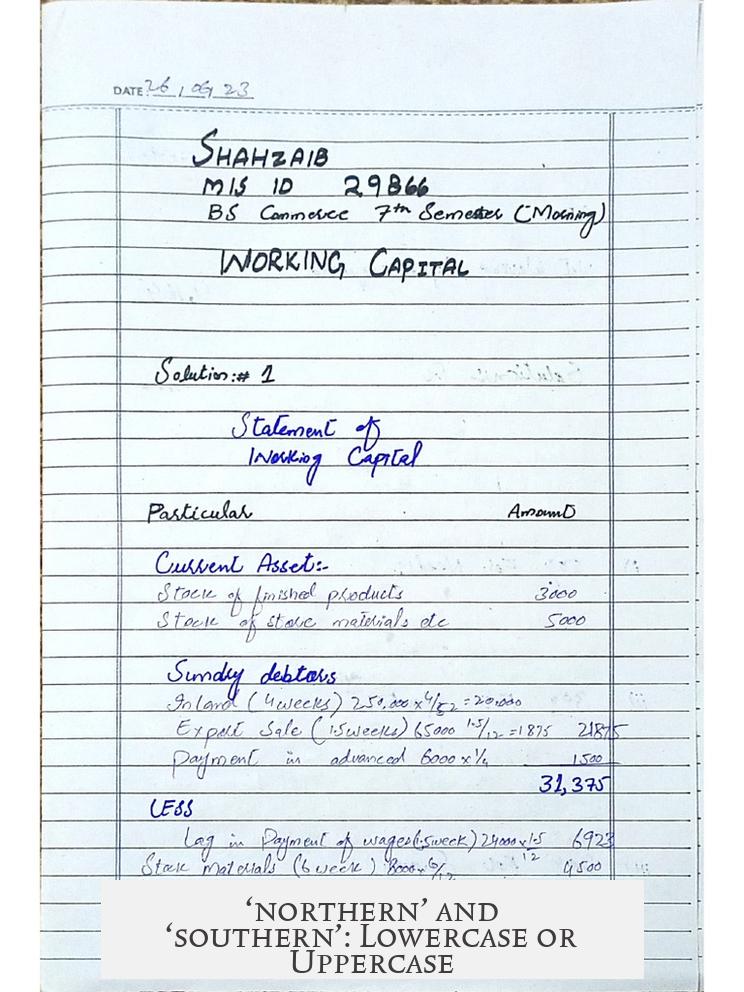 DATE 26 / 06 / 23
SHAHZAIB
MIS ID 29866
BS Commerce 7th Semester (Morning)
WORKING CAPITAL
Solution:# 1
Statement of
Working Capital
Particular Amount
Current Asset:-
Stock of finished products 3000
Stock of store materials etc 5000
Sundry debtors
Inland (4 weeks) 250,000 x 4/52 = 20,000
Export Sale (1.5 weeks) 65000 1.5/12 = 1875 21875
Payment in advanced 6000 x 1/4 1500
31,375
LESS
Lag in Payment of wages (1.5 week) 24000 x 1.5/12 6923
Stock materials (6 week) 8000 x 6/12 4500
‘NORTHERN’ AND
‘SOUTHERN’: LOWERCASE OR
UPPERCASE